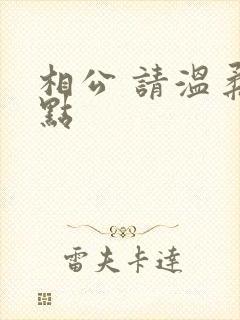 相公 請溫柔
點
雷夫卡達